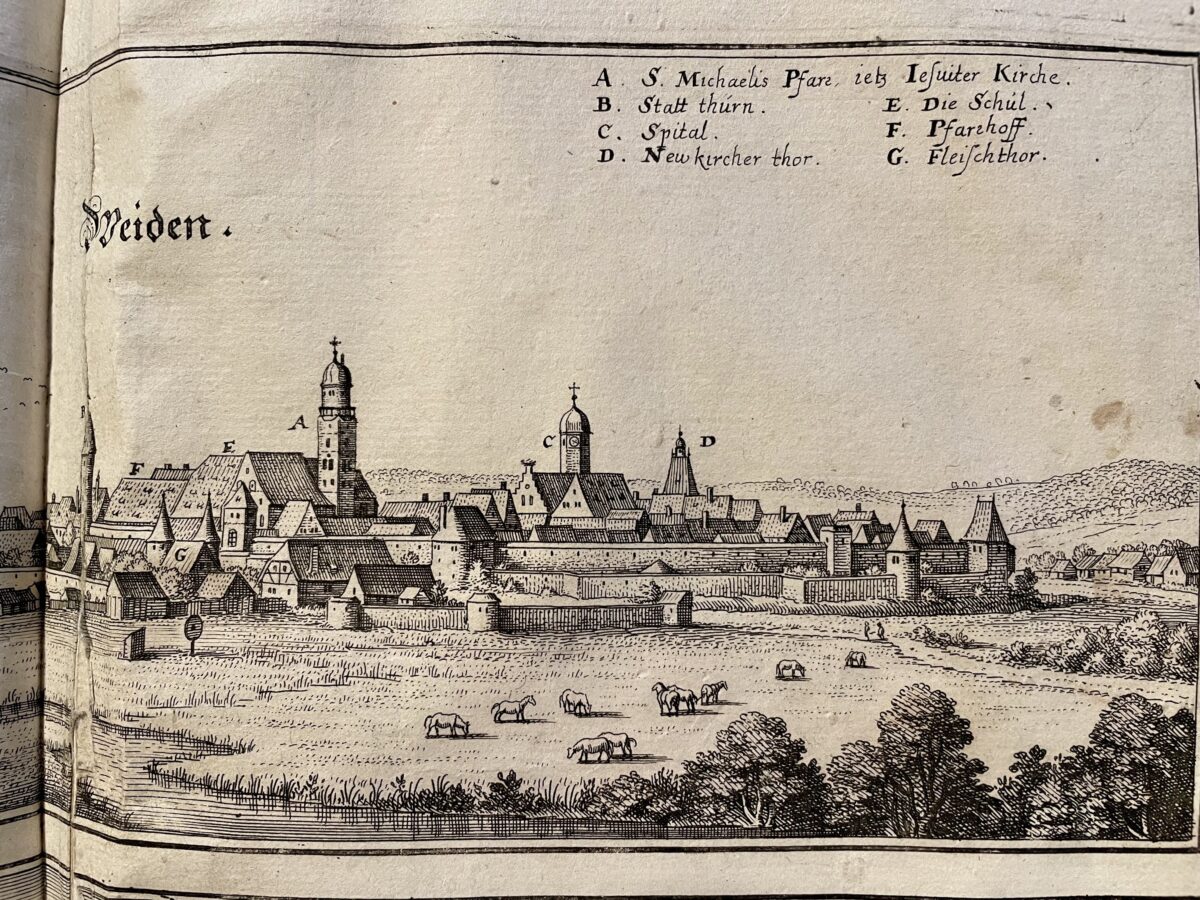 A. S. Michaelis Pfarr, ietz Iesuiter Kirche.
B. Statt thúrn.
C. Spital.
D. Newkircher thor.
E. Die Schúl.
F. Pfarrhoff.
G. Fleischthor.
Weiden.
A
C
D
E
F
G